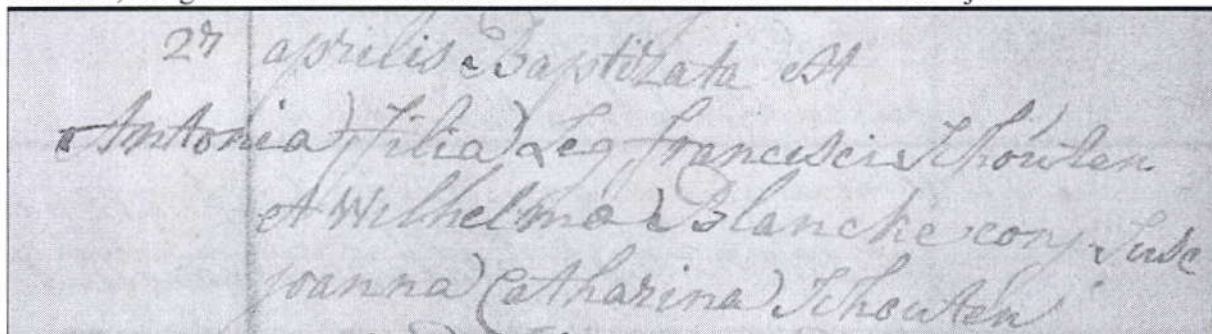 27 aprilis Baptizata est
Antonia Filia Leg francisci Schouten
et Wilhelmæ Blanche conj Susc
joanna Catharina Schouten